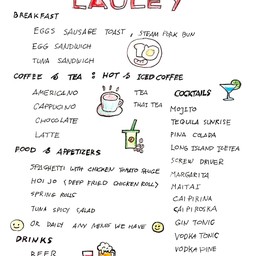 LAULE Y
BREAKFAST
EGGS SAUSAGE TOAST, STEAM PORK BUN
EGG SANDWICH
TUNA SANDWICH
COFFEE & TEA : HOT & ICED COFFEE
AMERICANO
CAPPUCINO
CHOCOLATE
LATTE
TEA
THAI TEA
FOOD & APPETIZERS
SPAGHETTI WITH CHICKEN TOMATO SAUCE
HOI JO (DEEP FRIED CHICKEN ROLL)
SPRING ROLLS
TUNA SPICY SALAD
OR DAILY ANY MENU WE HAVE
DRINKS
BEER
COCKTAILS
MOJITO
TEQUILA SUNRISE
PINA COLADA
LONG ISLAND ICETEA
SCREW DRIVER
MARGARITA
MAITAI
CAIPIRINA
CAIPIROSKA
GIN TONIC
VODKA TONIC
VODKA PINE